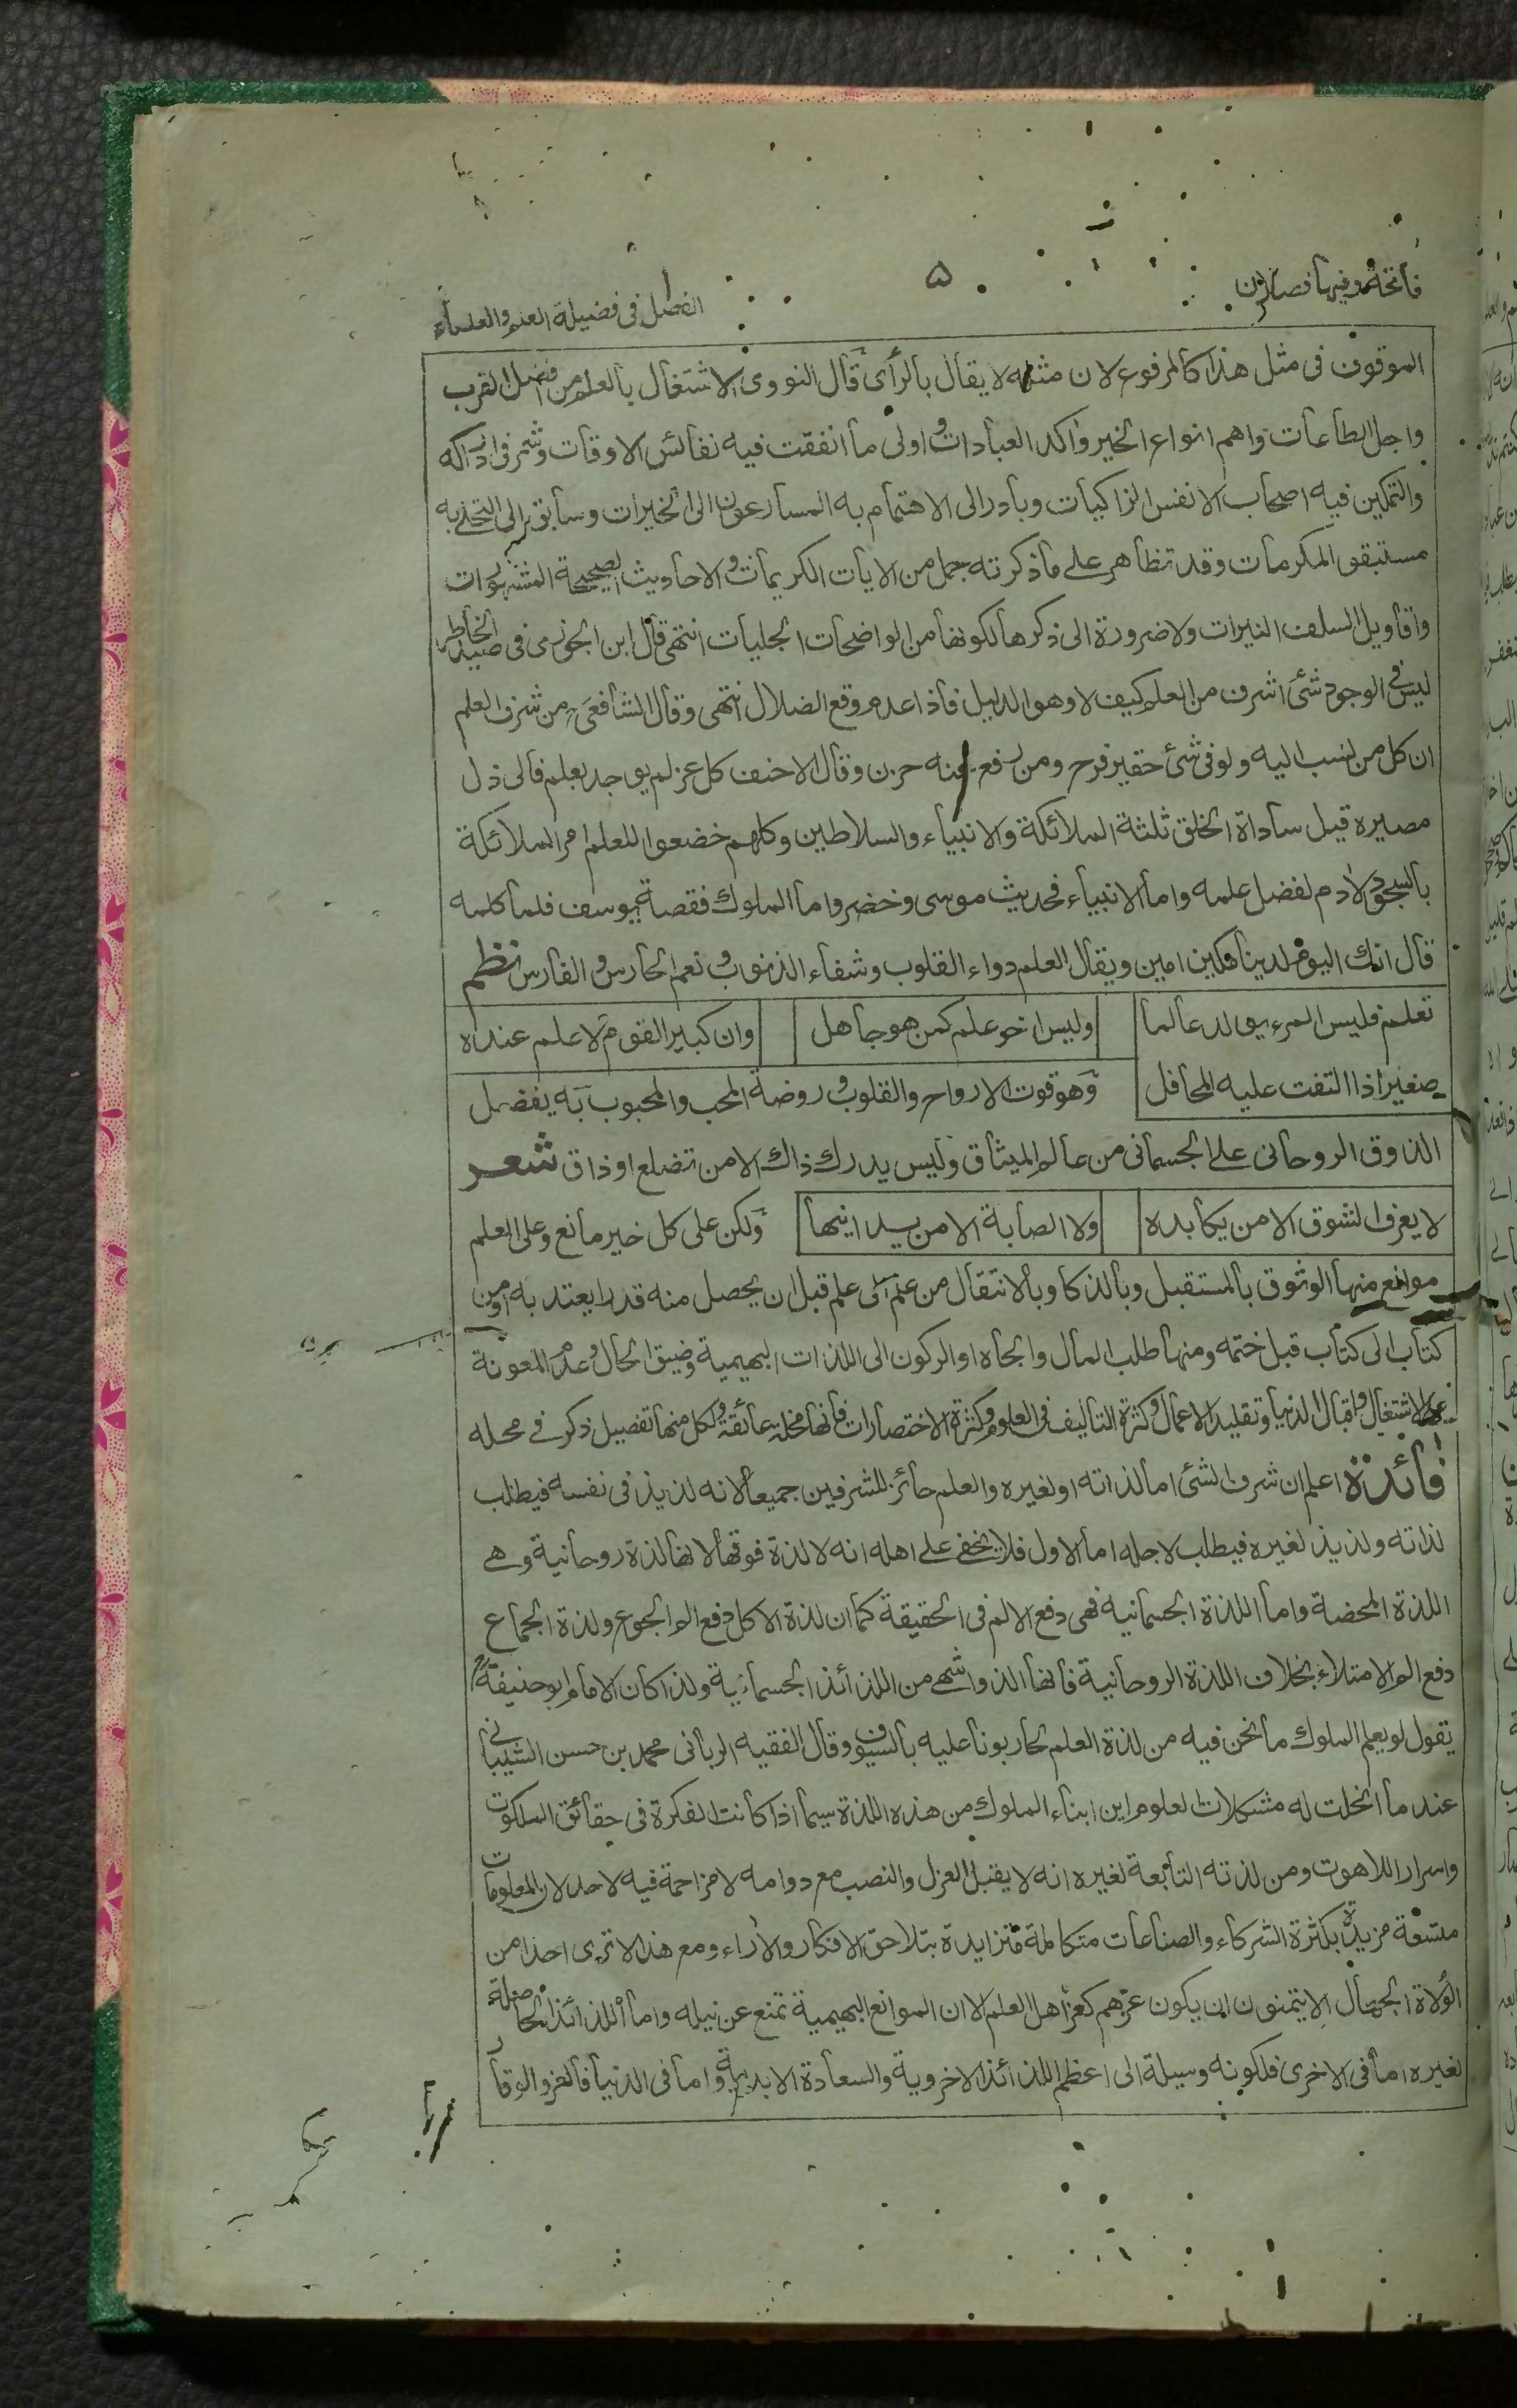 فاتحة وفيها فصلان
۵
الفصل فى فضيلة العلم والعلماء
الموقوف فى مثل هذا كالمرفوع لان مثله لا يقال بالرأى قال النووى الاشتغال بالعلم من افضل القرب
واجل الطاعات واهم انواع الخير واكد العبادات واولى ما انفقت فيه نفائس الاوقات وشمر فى ادراكه
والتمكين فيه اصحاب الانفس الزاكيات وبادر الى الاهتمام به المسارعون الى الخيرات وسابق الى التحلى به
مستبقو المكرمات وقد تظاهر على ماذكرته جمل من الايات الكريمات والاحاديث الصحيحة المشهورات
واقاويل السلف النيرات ولا ضرورة الى ذكرها لكونها من الواضحات الجليات انتهى قال ابن الجوزى فى صيد الخاطر
ليس فى الوجود شئ اشرف من العلم كيف لا وهو الدليل فاذا عدم وقع الضلال انتهى وقال الشافعى من شرف العلم
ان كل من نسب اليه ولو فى شئ حقير فرح ومن رفع عنه حزن وقال الاحنف كل عز لم يوجد بعلم فالى ذل
مصيره قيل ساداة الخلق ثلثة الملائكة والانبياء والسلاطين وكلهم خضعوا للعلم امر الملائكة
بالسجود لادم لفضل علمه واما الانبياء فحديث موسى وخضر واما الملوك فقصة يوسف فلما كلمه
قال انك اليوم لدينا مكين امين ويقال العلم دواء القلوب وشفاء الذنوب ونعم الحارس والفارس نظم
تعلم فليس المرء يولد عالما وليس اخو علم كمن هو جاهل وان كبير القوم لا علم عنده
صغير اذا التفت عليه المحافل وهو قوت الارواح والقلوب وروضة المحب والمحبوب به يفضل
الذوق الروحانى على الجسمانى من عالم الميثاق وليس يدرك ذاك الا من تضلع او ذاق شعر
لا يعرف الشوق الا من يكابده ولا الصبابة الا من يدانيها ولكن على كل خير مانع وعلى العلم
موانع منها الوثوق بالمستقبل وبالذكا وبالانتقال من علم الى علم قبل ان يحصل منه قدرا يعتد به او من
كتاب الى كتاب قبل ختمه ومنها طلب المال والجاه او الركون الى اللذات البهيمية وضيق الحال وعدم المعونة
على الاشتغال واقبال الدنيا وتقليد الاعمال وكثرة التأليف فى العلوم وكثرة الاختصارات فانها مخلة عائقة ولكل منها تفصيل ذكر فى محله
فائدة اعلم ان شرف الشئ اما لذاته او لغيره والعلم حائز للشرفين جميعا لانه لذيذ فى نفسه فيطلب
لذاته ولذيذ لغيره فيطلب لاجله اما الاول فلا يخفى على اهله انه لا لذة فوقها لانها لذة روحانية وهى
اللذة المحضة واما اللذة الجسمانية فهى دفع الالم فى الحقيقة كما ان لذة الاكل دفع الم الجوع ولذة الجماع
دفع الم الامتلاء بخلاف اللذة الروحانية فانها الذ واشهى من اللذائذ الجسمانية ولذا كان الامام ابو حنيفة
يقول لو يعلم الملوك ما نحن فيه من لذة العلم لحاربونا عليه بالسيوف وقال الفقيه الربانى محمد بن حسن الشيبانى
عند ما انحلت له مشكلات العلوم اين ابناء الملوك من هذه اللذة سيما اذا كانت الفكرة فى حقائق الملكوت
واسرار اللاهوت ومن لذته التابعة لغيره انه لا يقبل العزل والنصب مع دوامه لا مزاحمة فيه لاحد لان المعلومات
متسعة مزيدة بكثرة الشركاء والصناعات متكالمة متزايدة بتلاحق الافكار والاراء ومع هذا لا ترى احدا من
الولاة الجهال الا يتمنون ان يكون عزهم كعز اهل العلم الا ان الموانع البهيمية تمنع عن نيله واما اللذائذ الحاصلة
لغيره اما فى الاخرى فلكونه وسيلة الى اعظم اللذائذ الاخروية والسعادة الابدية واما فى الدنيا فالعز والوقار